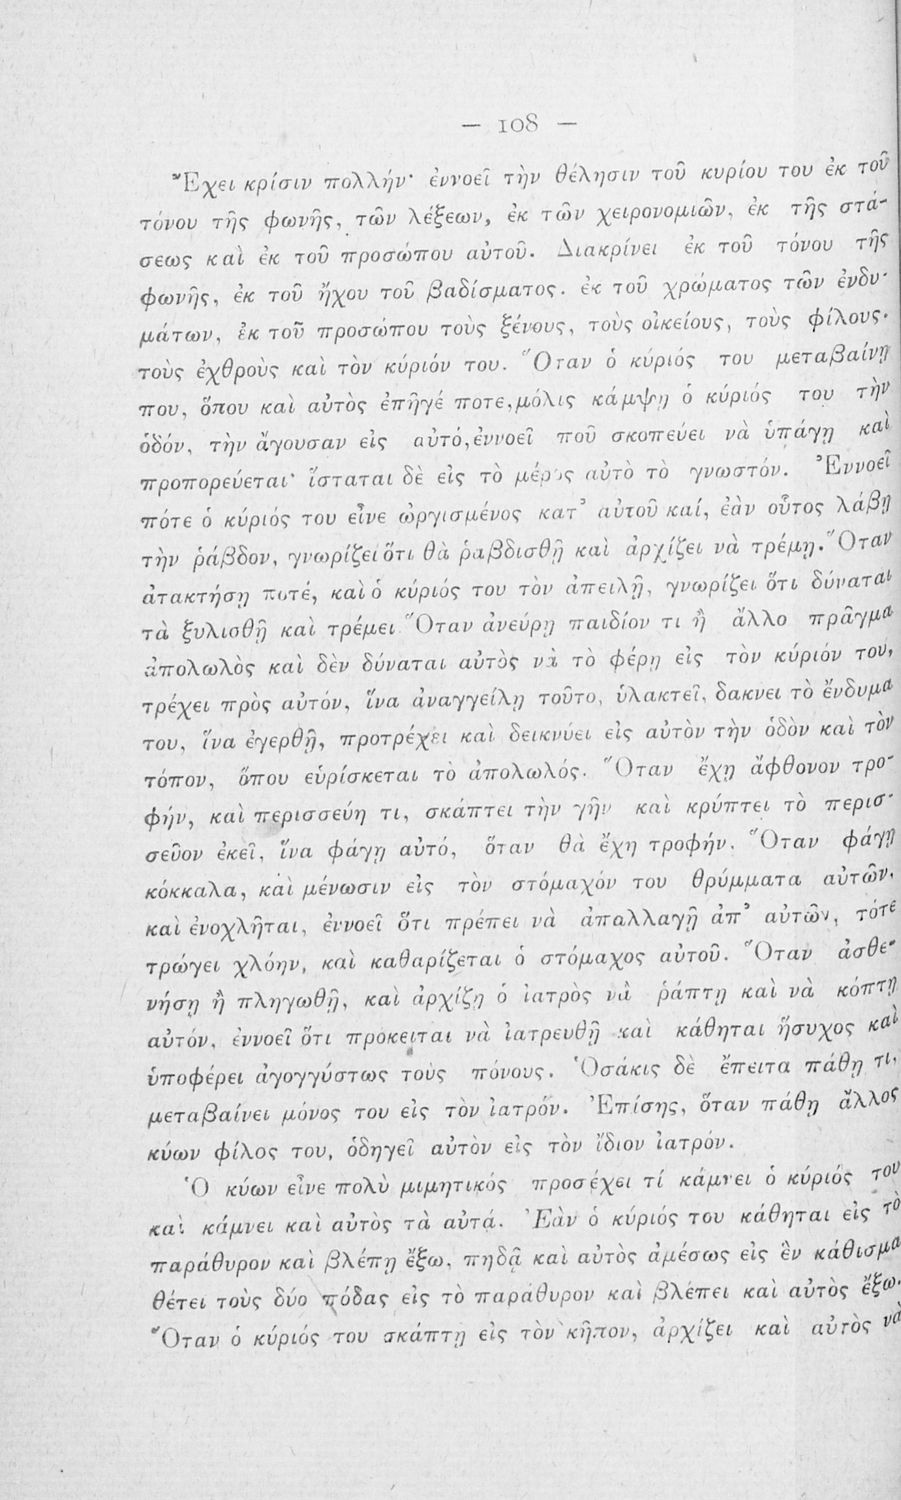 — 108 —
Ἔχει κρίσιν πολλήν· ἐννοεῖ τὴν θέλησιν τοῦ κυρίου του ἐκ τοῦ
τόνου τῆς φωνῆς, τῶν λέξεων, ἐκ τῶν χειρονομιῶν, ἐκ τῆς στά-
σεως καὶ ἐκ τοῦ προσώπου αὐτοῦ. Διακρίνει ἐκ τοῦ τόνου τῆς
φωνῆς, ἐκ τοῦ ἤχου τοῦ βαδίσματος. ἐκ τοῦ χρώματος τῶν ἐνδυ-
μάτων, ἐκ τοῦ προσώπου τοὺς ξένους, τοὺς οἰκείους, τοὺς φίλους.
τοὺς ἐχθροὺς καὶ τὸν κύριόν του. Ὅταν ὁ κύριός του μεταβαίνῃ
που, ὅπου καὶ αὐτὸς ἐπῆγέ ποτε, μόλις κάμψῃ ὁ κύριός του τὴν
ὁδόν, τὴν ἄγουσαν εἰς αὐτό, ἐννοεῖ ποῦ σκοπεύει νὰ ὑπάγῃ καὶ
προπορεύεται· ἵσταται δὲ εἰς τὸ μέρος αὐτὸ τὸ γνωστόν. Ἐννοεῖ
πότε ὁ κύριός του εἶνε ὠργισμένος κατ’ αὐτοῦ καί, ἐὰν οὗτος λάβῃ
τὴν ῥάβδον, γνωρίζει ὅτι θὰ ῥαβδισθῇ καὶ ἀρχίζει νὰ τρέμῃ. Ὅταν
ἀτακτήσῃ ποτέ, καὶ ὁ κύριός του τὸν ἀπειλῇ, γνωρίζει ὅτι δύναται
τὰ ξυλισθῇ καὶ τρέμει Ὅταν ἀνεύρῃ παιδίον τι ἢ ἄλλο πρᾶγμα
ἀπολωλὸς καὶ δὲν δύναται αὐτὸς νὰ τὸ φέρῃ εἰς τὸν κύριόν του,
τρέχει πρὸς αὐτόν, ἵνα ἀναγγείλῃ τοῦτο, ὑλακτεῖ, δακνει τὸ ἔνδυμα
του, ἵνα ἐγερθῇ, προτρέχει καὶ δεικνύει εἰς αὐτὸν τὴν ὁδὸν καὶ τὸν
τόπον, ὅπου εὑρίσκεται τὸ ἀπολωλός. Ὅταν ἔχῃ ἄφθονον τρο-
φήν, καὶ περισσεύῃ τι, σκάπτει τὴν γῆν καὶ κρύπτει τὸ περισ-
σεῦον ἐκεῖ, ἵνα φάγῃ αὐτό, ὅταν θὰ ἔχῃ τροφήν. Ὅταν φάγῃ
κόκκαλα, καὶ μένωσιν εἰς τὸν στόμαχόν του θρύμματα αὐτῶν,
καὶ ἐνοχλῆται, ἐννοεῖ ὅτι πρέπει νὰ ἀπαλλαγῇ ἀπ’ αὐτῶν, τότε
τρώγει χλόην, καὶ καθαρίζεται ὁ στόμαχος αὐτοῦ. Ὅταν ἀσθε-
νήσῃ ἢ πληγωθῇ, καὶ ἀρχίζῃ ὁ ἰατρὸς νὰ ῥάπτῃ καὶ νὰ κόπτῃ
αὐτόν, ἐννοεῖ ὅτι πρόκειται νὰ ἰατρευθῇ καὶ κάθηται ἥσυχος καὶ
ὑποφέρει ἀγογγύστως τοὺς πόνους. Ὁσάκις δὲ ἔπειτα πάθῃ τι,
μεταβαίνει μόνος του εἰς τὸν ἰατρόν. Ἐπίσης, ὅταν πάθῃ ἄλλος
κύων φίλος του, ὁδηγεῖ αὐτὸν εἰς τὸν ἴδιον ἰατρόν.
Ὁ κύων εἶνε πολὺ μιμητικός προσέχει τί κάμνει ὁ κύριός του
καὶ κάμνει καὶ αὐτὸς τὰ αὐτά. Ἐὰν ὁ κύριός του κάθηται εἰς τὸ
παράθυρον καὶ βλέπῃ ἔξω, πηδᾷ καὶ αὐτὸς ἀμέσως εἰς ἓν κάθισμα
θέτει τοὺς δύο πόδας εἰς τὸ παράθυρον καὶ βλέπει καὶ αὐτὸς ἔξω.
Ὅταν ὁ κύριός του σκάπτῃ εἰς τὸν κῆπον, ἀρχίζει καὶ αὐτὸς νὰ